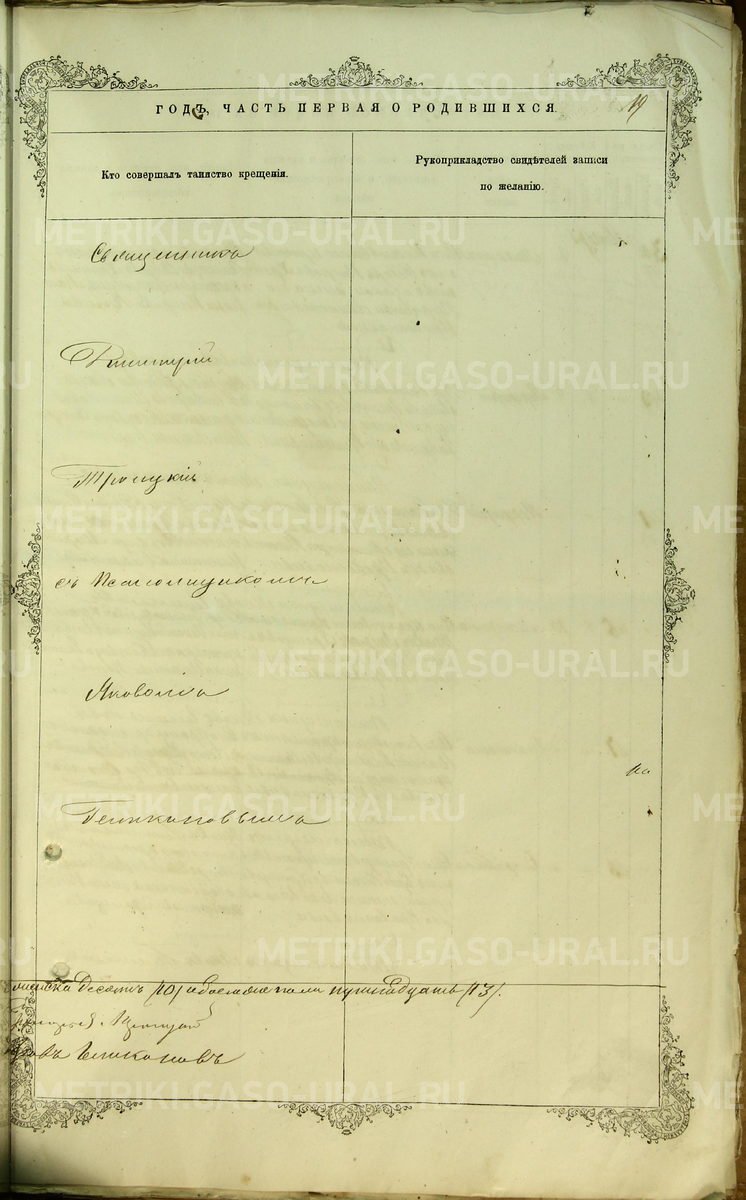 ГОДЪ, ЧАСТЬ ПЕРВАЯ О РОДИВШИХСЯ.
19
Кто совершалъ таинство крещенія.
Рукоприкладство свидѣтелей записи
по желанію.
Священникъ
Димитрій
Троицкій
съ Псаломщикомъ
Яковомъ
на
десять (10) обоего пола тринадцать (13).
Троицкій
METRIKI.GASO-URAL.RU